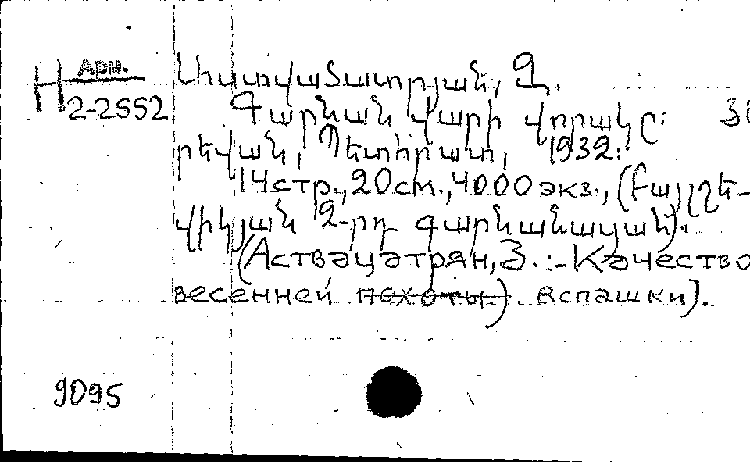 Арм.
Н 2-2552
Աստվածատրյան, Զ.
Գարնան վարի վորակը: ՅԵ
րեվան, Պետհրատ, 1932:
14 стр., 20 cm., 4000 экз., (Բալշե-
վիկյան 2-րդ գարնանացան).
(Аствацатрян, З. :- Качество
весенней пехоты). вспашки].
9095